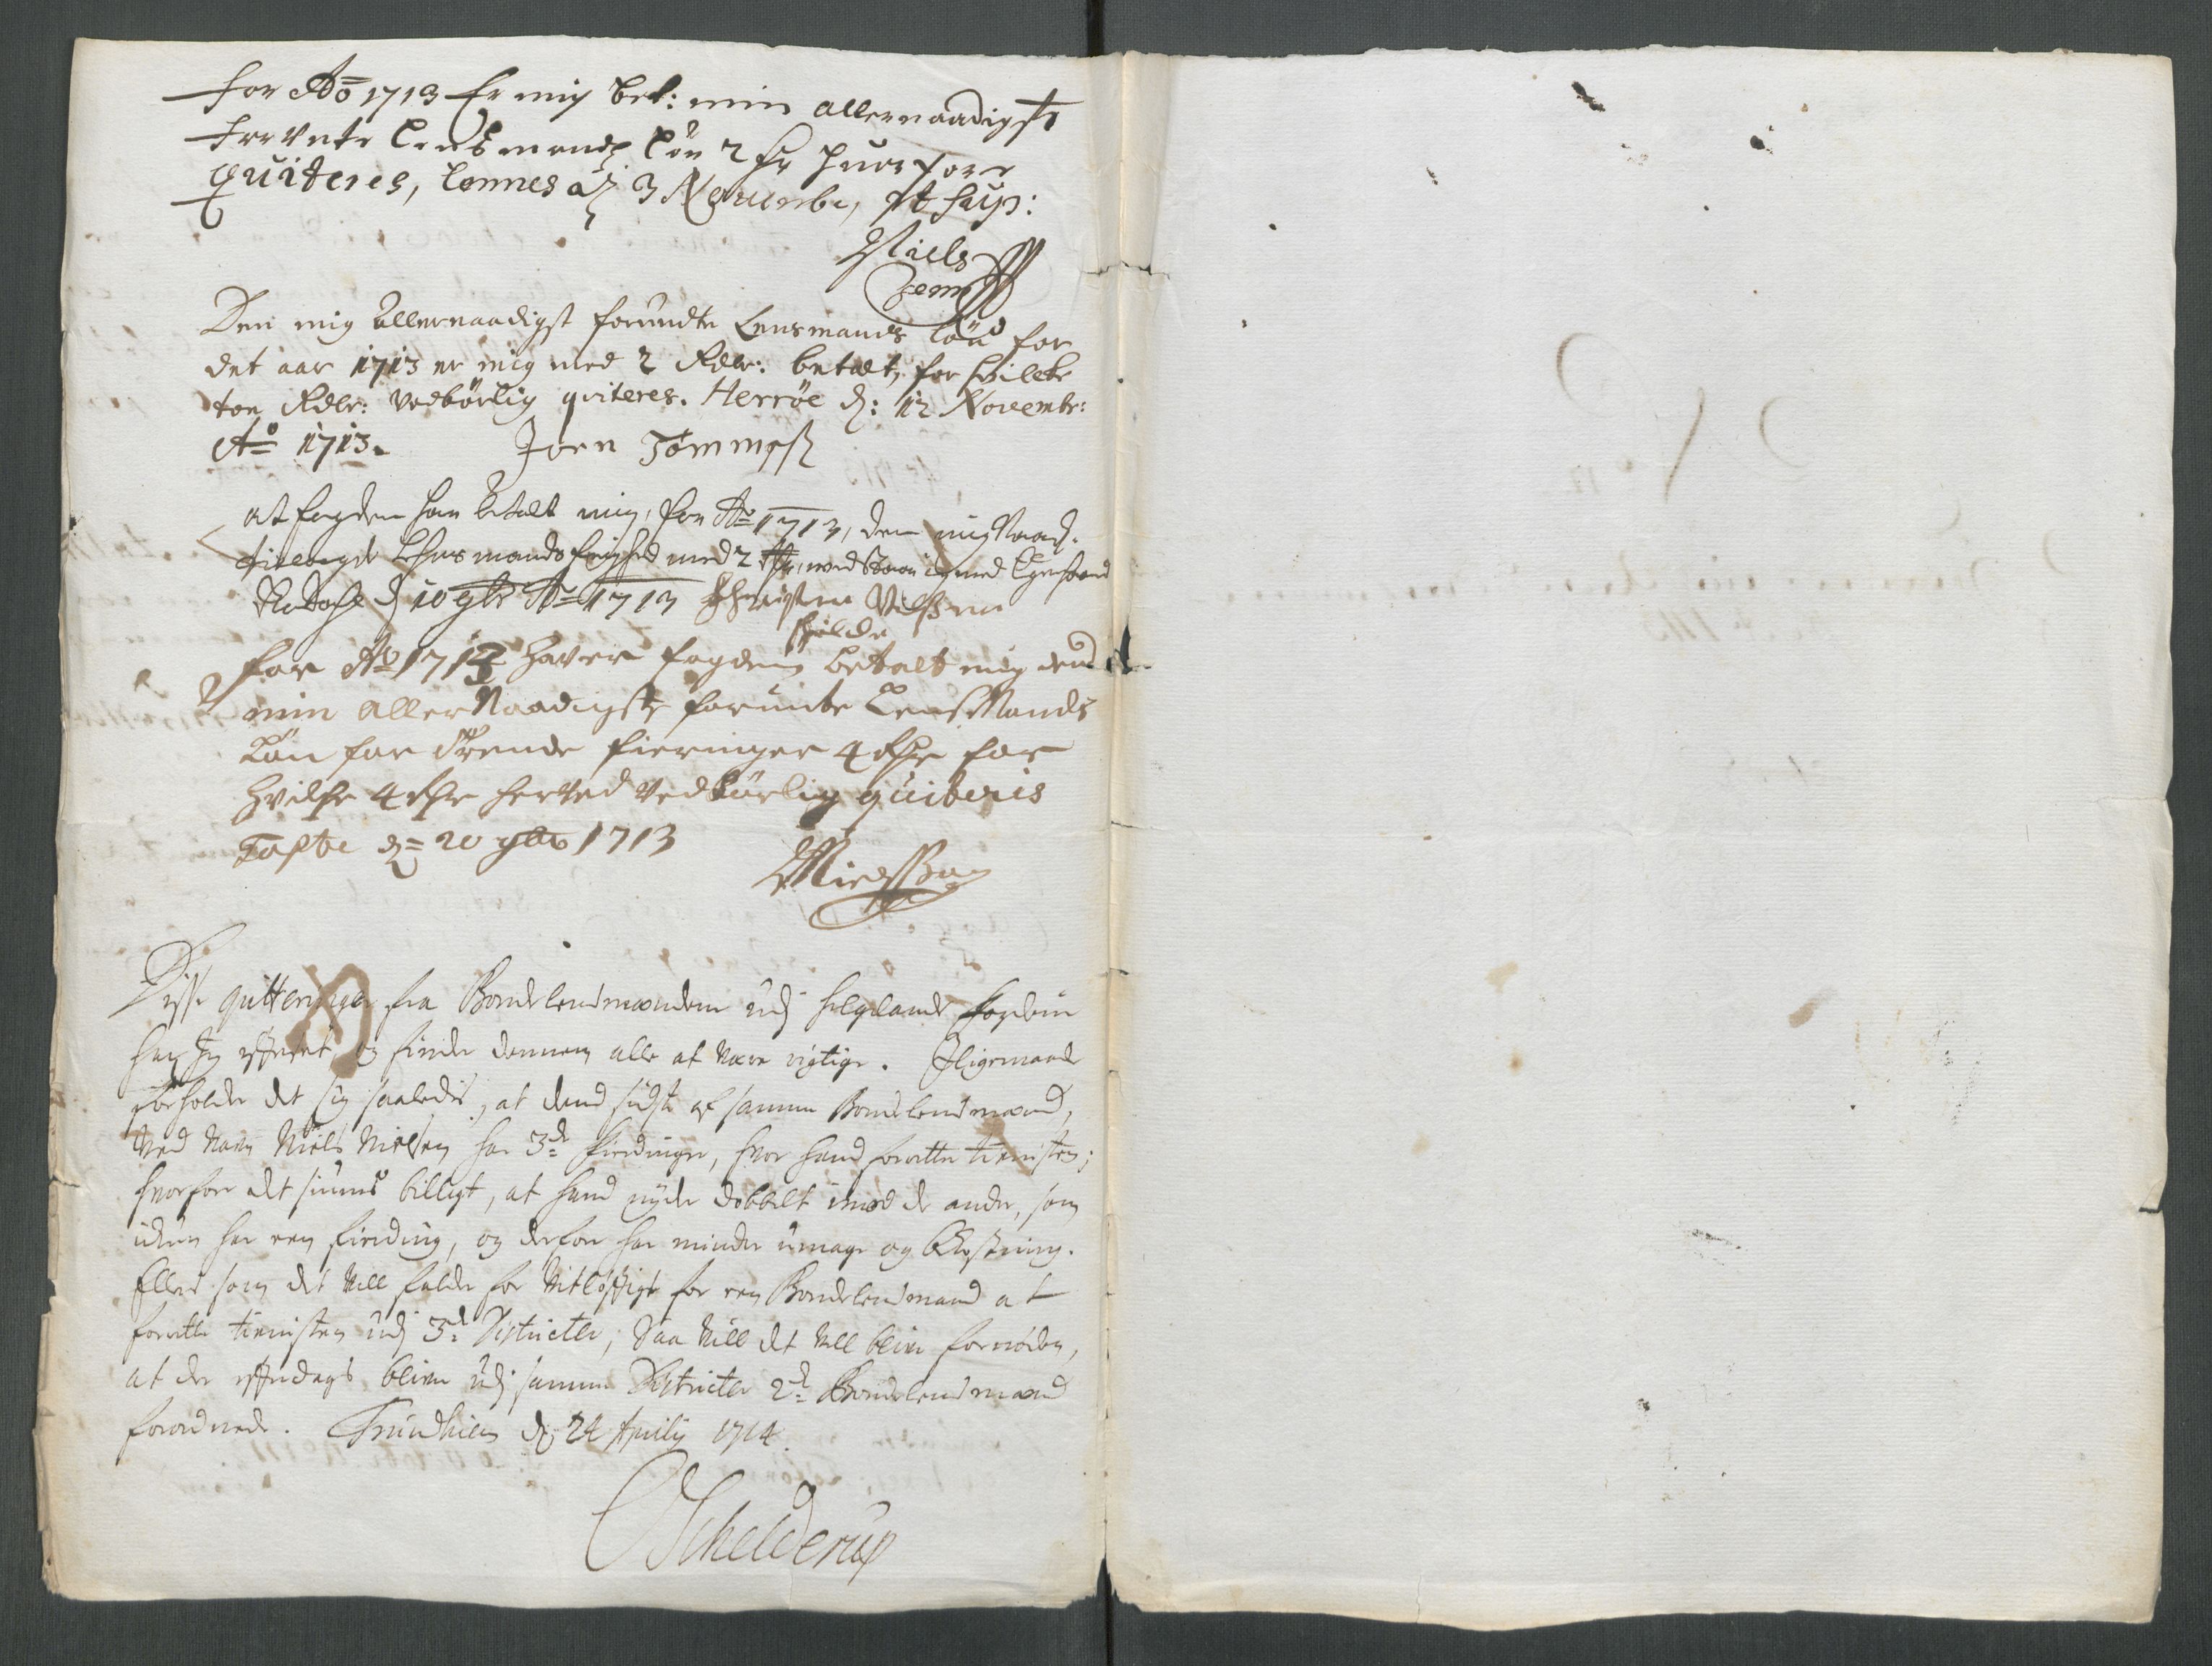 for Ao 1713 Er mig bet: min allernaadigst
forunte Lensmandz Løn 2 hvorfore
quiteres, Lonnes dz 3 Novembr,
Niels
Den mig Allernaadigst forundte Lensmands Løn for
det aar 1713 er mig med 2 Rdlr: betalt, for hvilcke
toe Rdlr: vedbörlig qviteres. Herröe d: 12 Novembr:
Ao 1713. Joen Tommesß
at fogden har betalt mig, for Ao 1713, den mig Naad.
Lhensmands med 2 med Egen haand
d 10 9br Ao 1713 Christen Nilßen
for Ao 1713 haver fogden betalt mig dend
min aller Naadigste forunte LensMands
Løn for Trende fieringer 4 rdr for
hvilche 4 rdr herved vedbørlig quiteris
d= 20 9br 1713
Disse qvitteringer fra Bondelensmændene udj Helgelands fogderie
har Jeg efterset og finder dennem alle at være rigtige. Jligemaade
forholder det sig saaledis, at dend sidste af samme Bondelensmænd,
Ved Navn Niels Nielsen har 3de fierdinger, hvor hand forretter tienisten;
hvorfore det siunes billigt, at hand nyder dobbelt imod de andre, som
ickun har een fierding, og derfor har mindre umage og bekostning.
Ellers som det vill falde for Vitløftigt for een Bondelensmand at
forrette tienisten udj 3de Districter, Saa vill det vell blive fornøden,
at der efterdags bliver udj samme Districter 2de Bondelensmænd
forordnede. Trundhiem d. 24 Aprilij 1714.
Schelderup